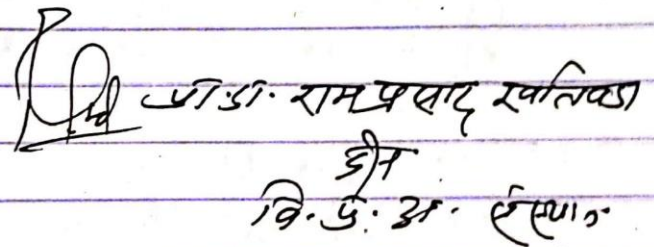 प्रा.डा. रामप्रसाद खतिवडा
डीन
वि. प्र. अ. संस्थान